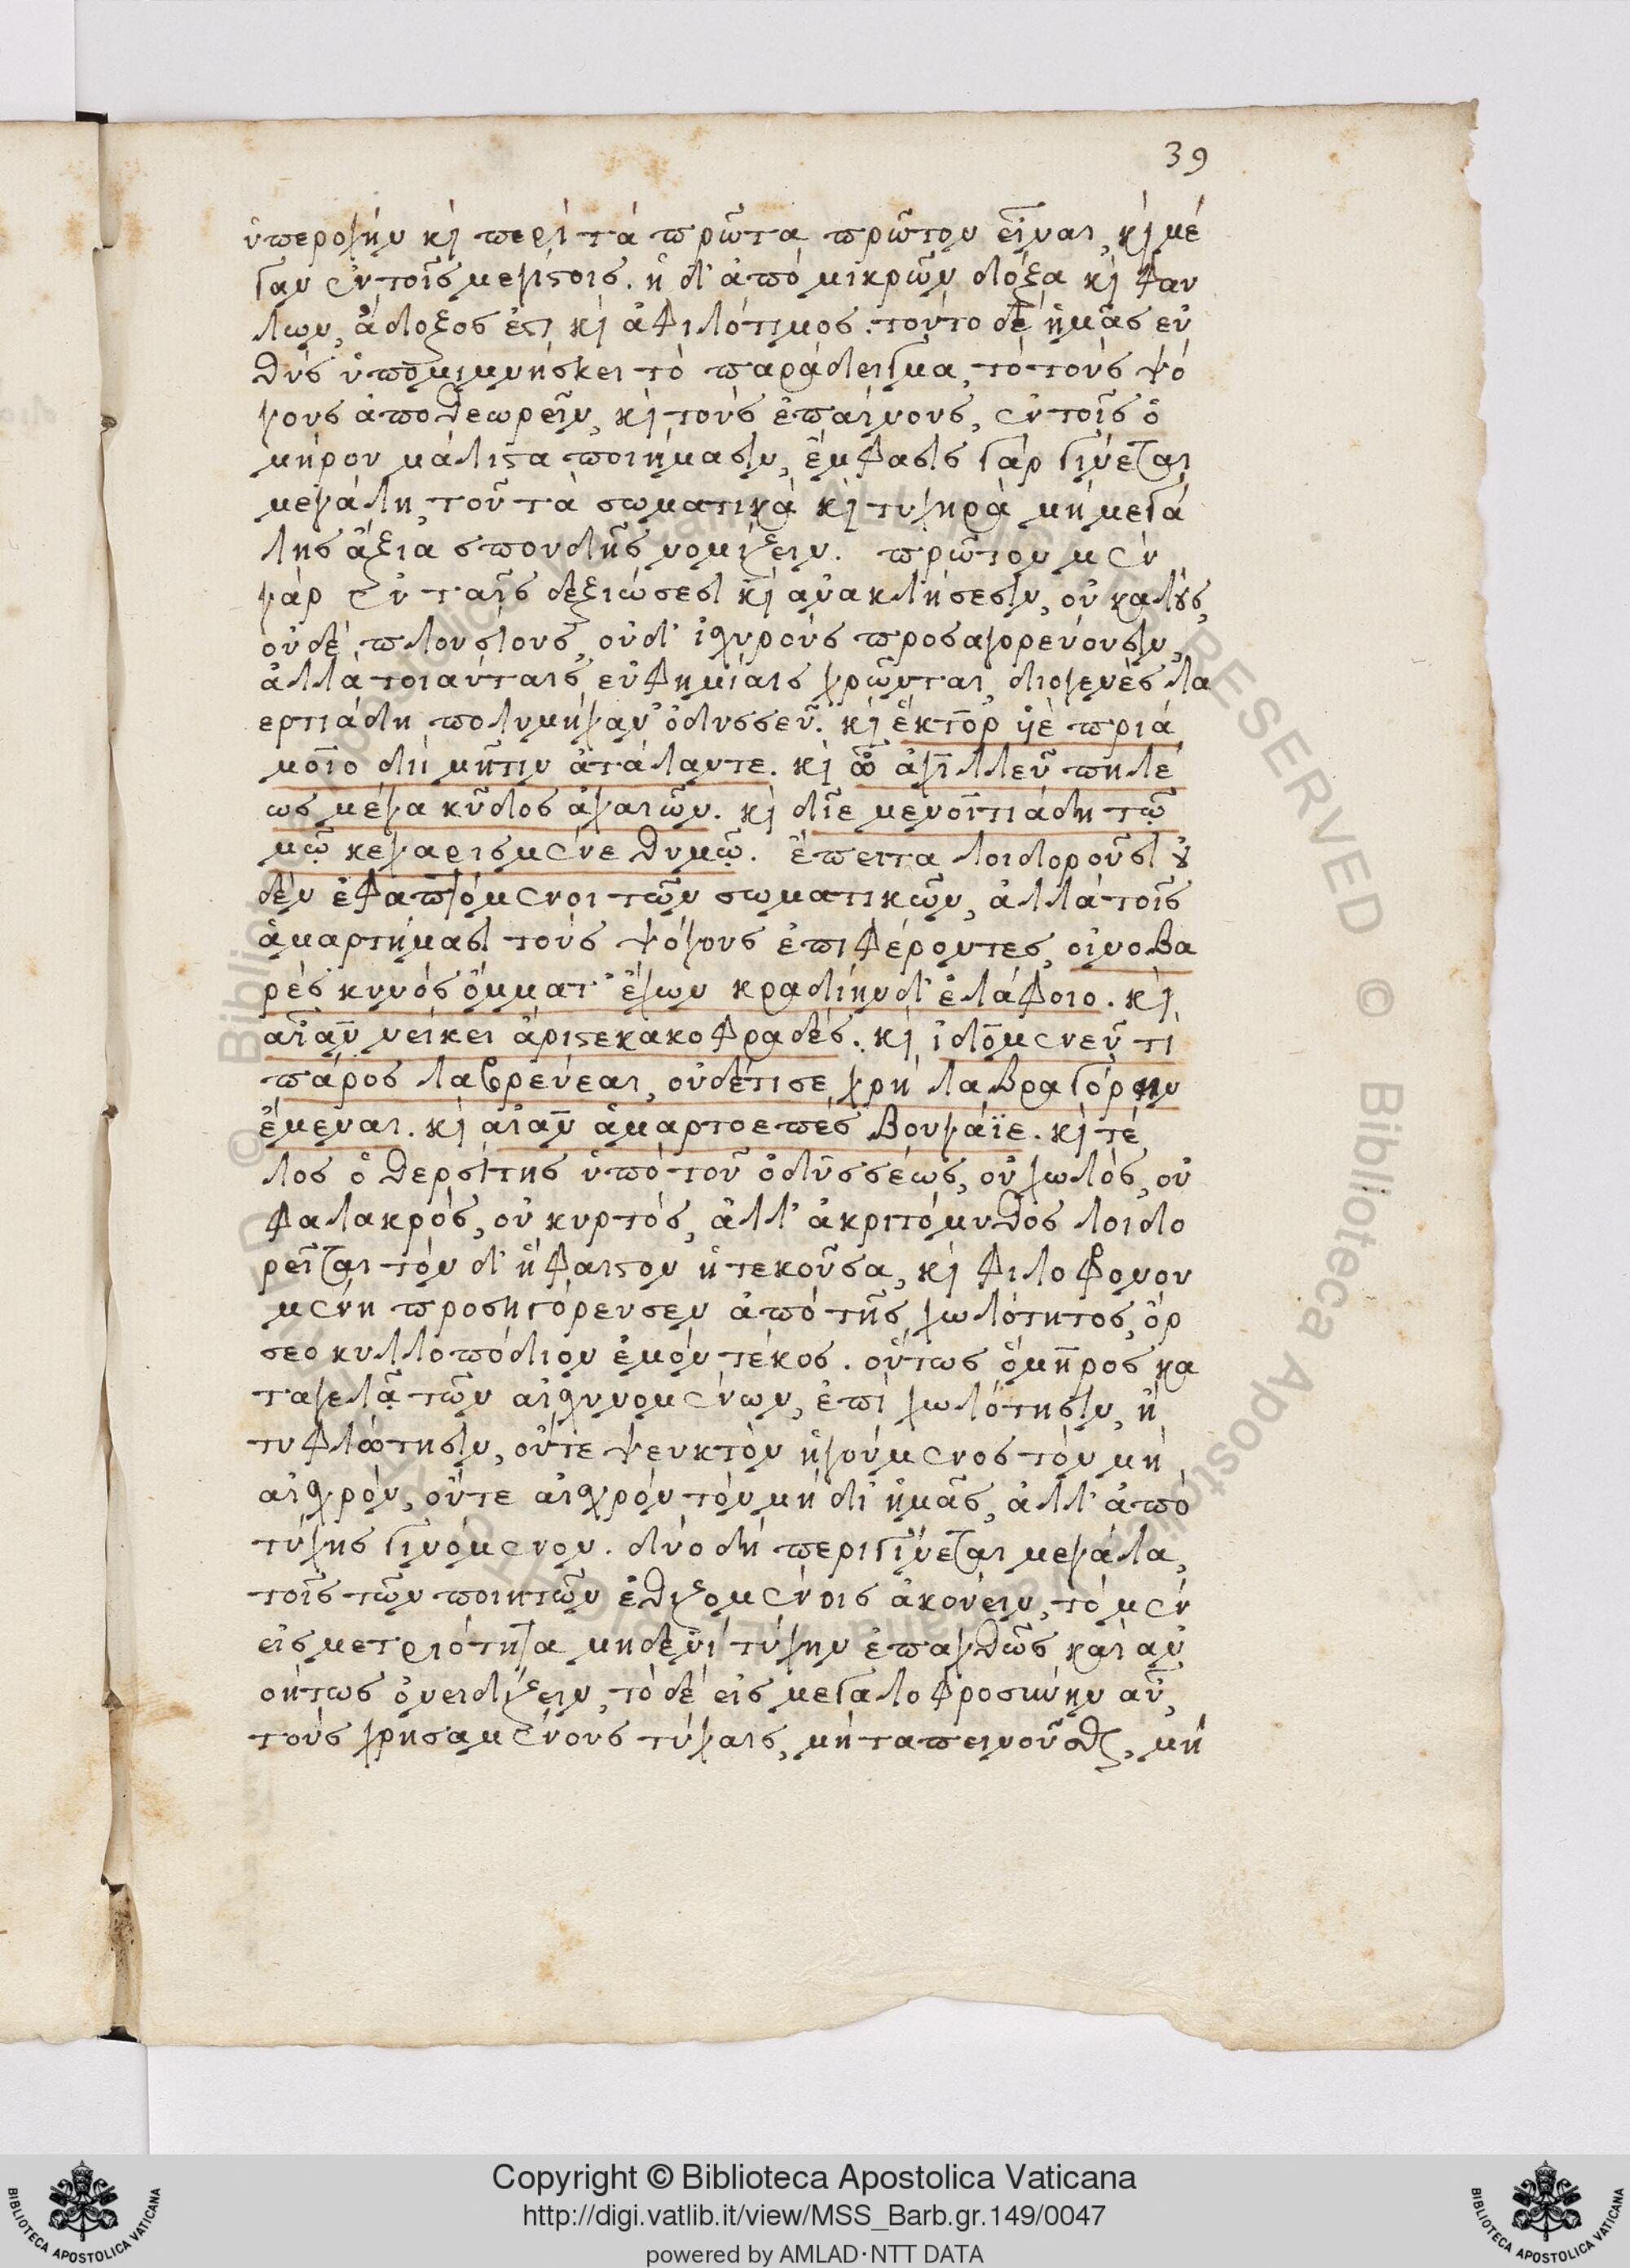 39
ὑπεροχήν κὶ περὶ τὰ πρῶτα πρῶτον εἶναι, κὶ μέ
γαν ἐν τοῖς μεγίστοις. ἡ δ' ἀπό μικρῶν δόξα κὶ φαυ
λων, ἄδοξος ἐστι κὶ ἀφιλότιμος. τοῦτο δὲ ἡμᾶς εὐ
θύς ὑπομιμνήσκει τὸ παράδειγμα, τὸ τούς ψό
γους ἀποθεωρεῖν, κὶ τούς ἐπαίνους, ἐν τοῖς ὁ
μήρου μάλιστα ποιήμασιν, ἔμφασις γάρ γίνεται
μεγάλη, τοῦ τὰ σωματικὰ κὶ τυχηρὰ μή μεγά
λης ἄξια σπουδῆς νομίζειν. πρῶτον μέν
γάρ ἐν ταῖς δεξιώσεσι κὶ ἀνακλήσεσιν, οὐ καλούς,
οὐδέ πλουσίους, οὐδ' ἰσχυρούς προσαγορεύουσιν,
ἀλλά τοιαύταις εὐφημίαις χρῶνται, διογενὲς λα
ερτιάδη πολυμήχαν' ὀδυσσεῦ. κὶ ἕκτορ ὑιὲ πριά
μοιο διί μῆτιν ἀτάλαντε. κὶ ὦ ἀχιλλεῦ πηλέ
ως μέγα κῦδος ἀχαιῶν. κὶ δῖε μενοιτιάδη τῶ
μῶ κεχαρισμένε θυμῶ. ἔπειτα λοιδοροῦσι οὐ
δὲν ἐφαπτόμενοι τῶν σωματικῶν, ἀλλά τοῖς
ἁμαρτήμασι τούς ψόγους ἐπιφέροντες, οἰνοβα
ρὲς κυνός ὄμματ' ἔχων κραδίην δ' ἐλάφοιο. κὶ
αἶαν νείκει ἄριστε κακοφραδές. κὶ ἰδομενεῦ τί
πάρος λαβρεύεαι, οὐδέτισε χρή λαβραγόρην
ἔμεναι. κὶ αἶαν ἁμαρτοεπές βουγάϊε. κὶ τέ
λος ὁ θερσίτης ὑπό τοῦ ὀδυσσέως, οὐ χωλός, οὐ
φαλακρός, οὐ κυρτός, ἀλλ' ἀκριτόμυθος λοιδο
ρεῖται τόν δ' ἥφαιστον ἡ τεκοῦσα, κὶ φιλοφρονου
μένη προσηγόρευσεν ἀπό τῆς χωλότητος, ὄρ
σεο κυλλοπόδιον ἐμόν τέκος. οὕτως ὅμηρος κα
ταγελᾷ τῶν αἰσχυνομένων, ἐπί χωλότησιν, ἤ
τυφλότησιν, οὔτε ψευκτὸν ἡγούμενος τόν μή
αἰσχρόν, οὔτε αἰσχρόν τόν μή δι' ἡμᾶς, ἀλλ' ἀπό
τύχης γινόμενον. δύο δή περιγίνεται μεγάλα,
τοῖς τῶν ποιητῶν ἐθιζομένοις ἀκούειν, τό μέν
εἰς μετριότητα μηδενί τύχην ἐπαχθῶς καὶ ἀν
οήτως ὀνειδίζειν, τό δέ εἰς μεγαλοφροσύνην αὐ
τούς χρησαμένους τύχαις, μή ταπεινοῦσθαι, μή
Copyright © Biblioteca Apostolica Vaticana
http://digi.vatlib.it/view/MSS_Barb.gr.149/0047
powered by AMLAD·NTT DATA
BIBLIOTECA APOSTOLICA VATICANA
BIBLIOTECA APOSTOLICA VATICANA